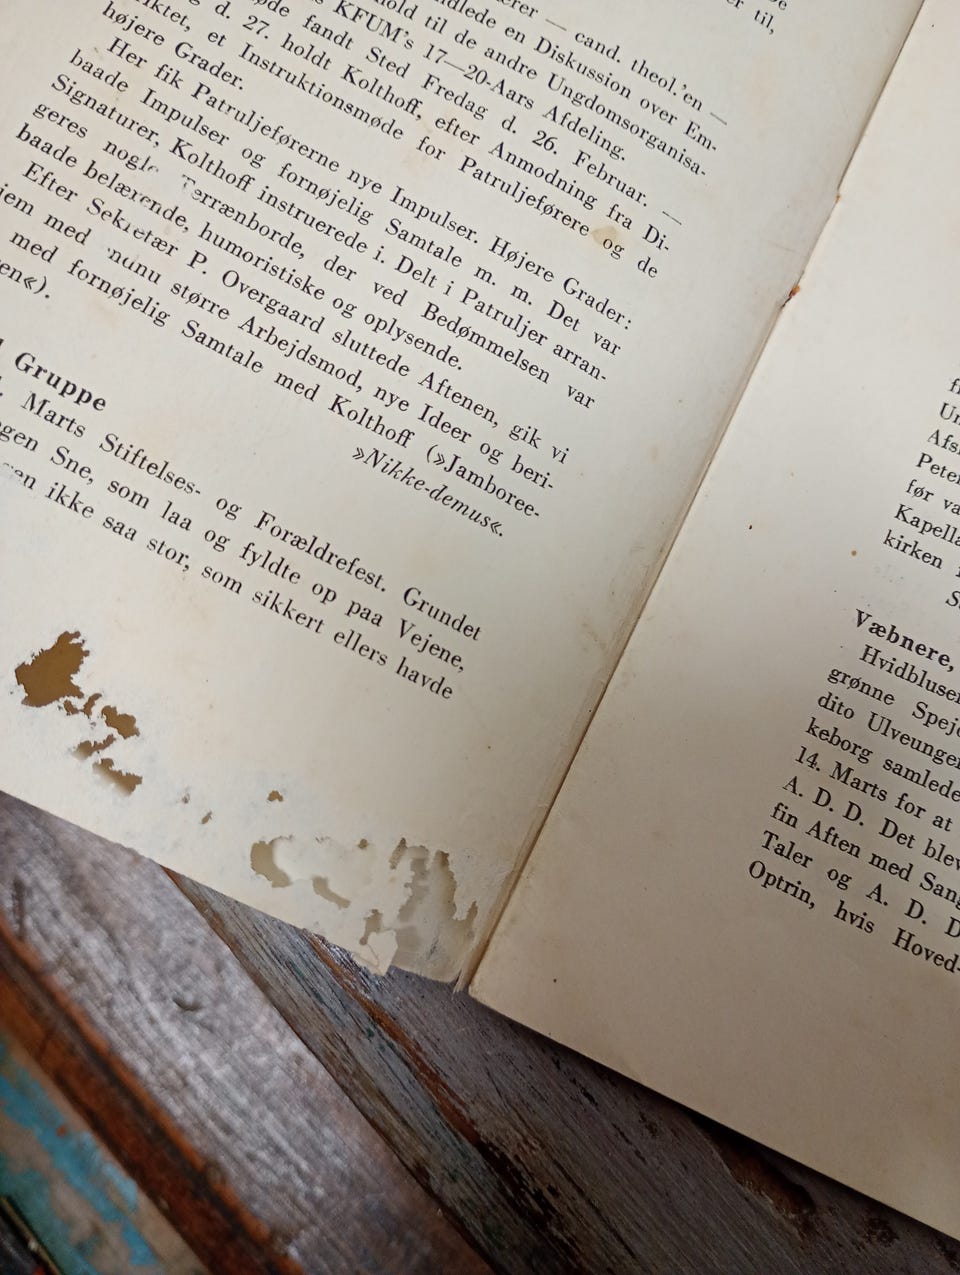 til,
erer — cand. theol.'en —
ndlede en Diskussion over Em-
hold til de andre Ungdomsorganisa-
KFUM's 17—20-Aars Afdeling.
øde fandt Sted Fredag d. 26. Februar. —
g d. 27. holdt Kolthoff, efter Anmodning fra Di-
riktet, et Instruktionsmøde for Patruljeførere og de
højere Grader.
Her fik Patruljeførerne nye Impulser. Højere Grader:
baade Impulser og fornøjelig Samtale m. m. Det var
Signaturer, Kolthoff instruerede i. Delt i Patruljer arran-
geres nogle Terrænborde, der ved Bedømmelsen var
baade belærende, humoristiske og oplysende.
Efter Sekretær P. Overgaard sluttede Aftenen, gik vi
jem med nunu større Arbejdsmod, nye Ideer og beri-
med fornøjelig Samtale med Kolthoff (»Jamboree-
en«).
»Nikke-demus«.
Gruppe
Marts Stiftelses- og Forældrefest. Grundet
ogen Sne, som laa og fyldte op paa Vejene,
en ikke saa stor, som sikkert ellers havde
fr
Un
Afs
Peter
før va
Kapella
kirken
S
Væbnere,
Hvidbluser
grønne Spejd
dito Ulveunger
keborg samlede
14. Marts for at
A. D. D. Det blev
fin Aften med Sang
Taler og A. D. D
Optrin, hvis Hoved-